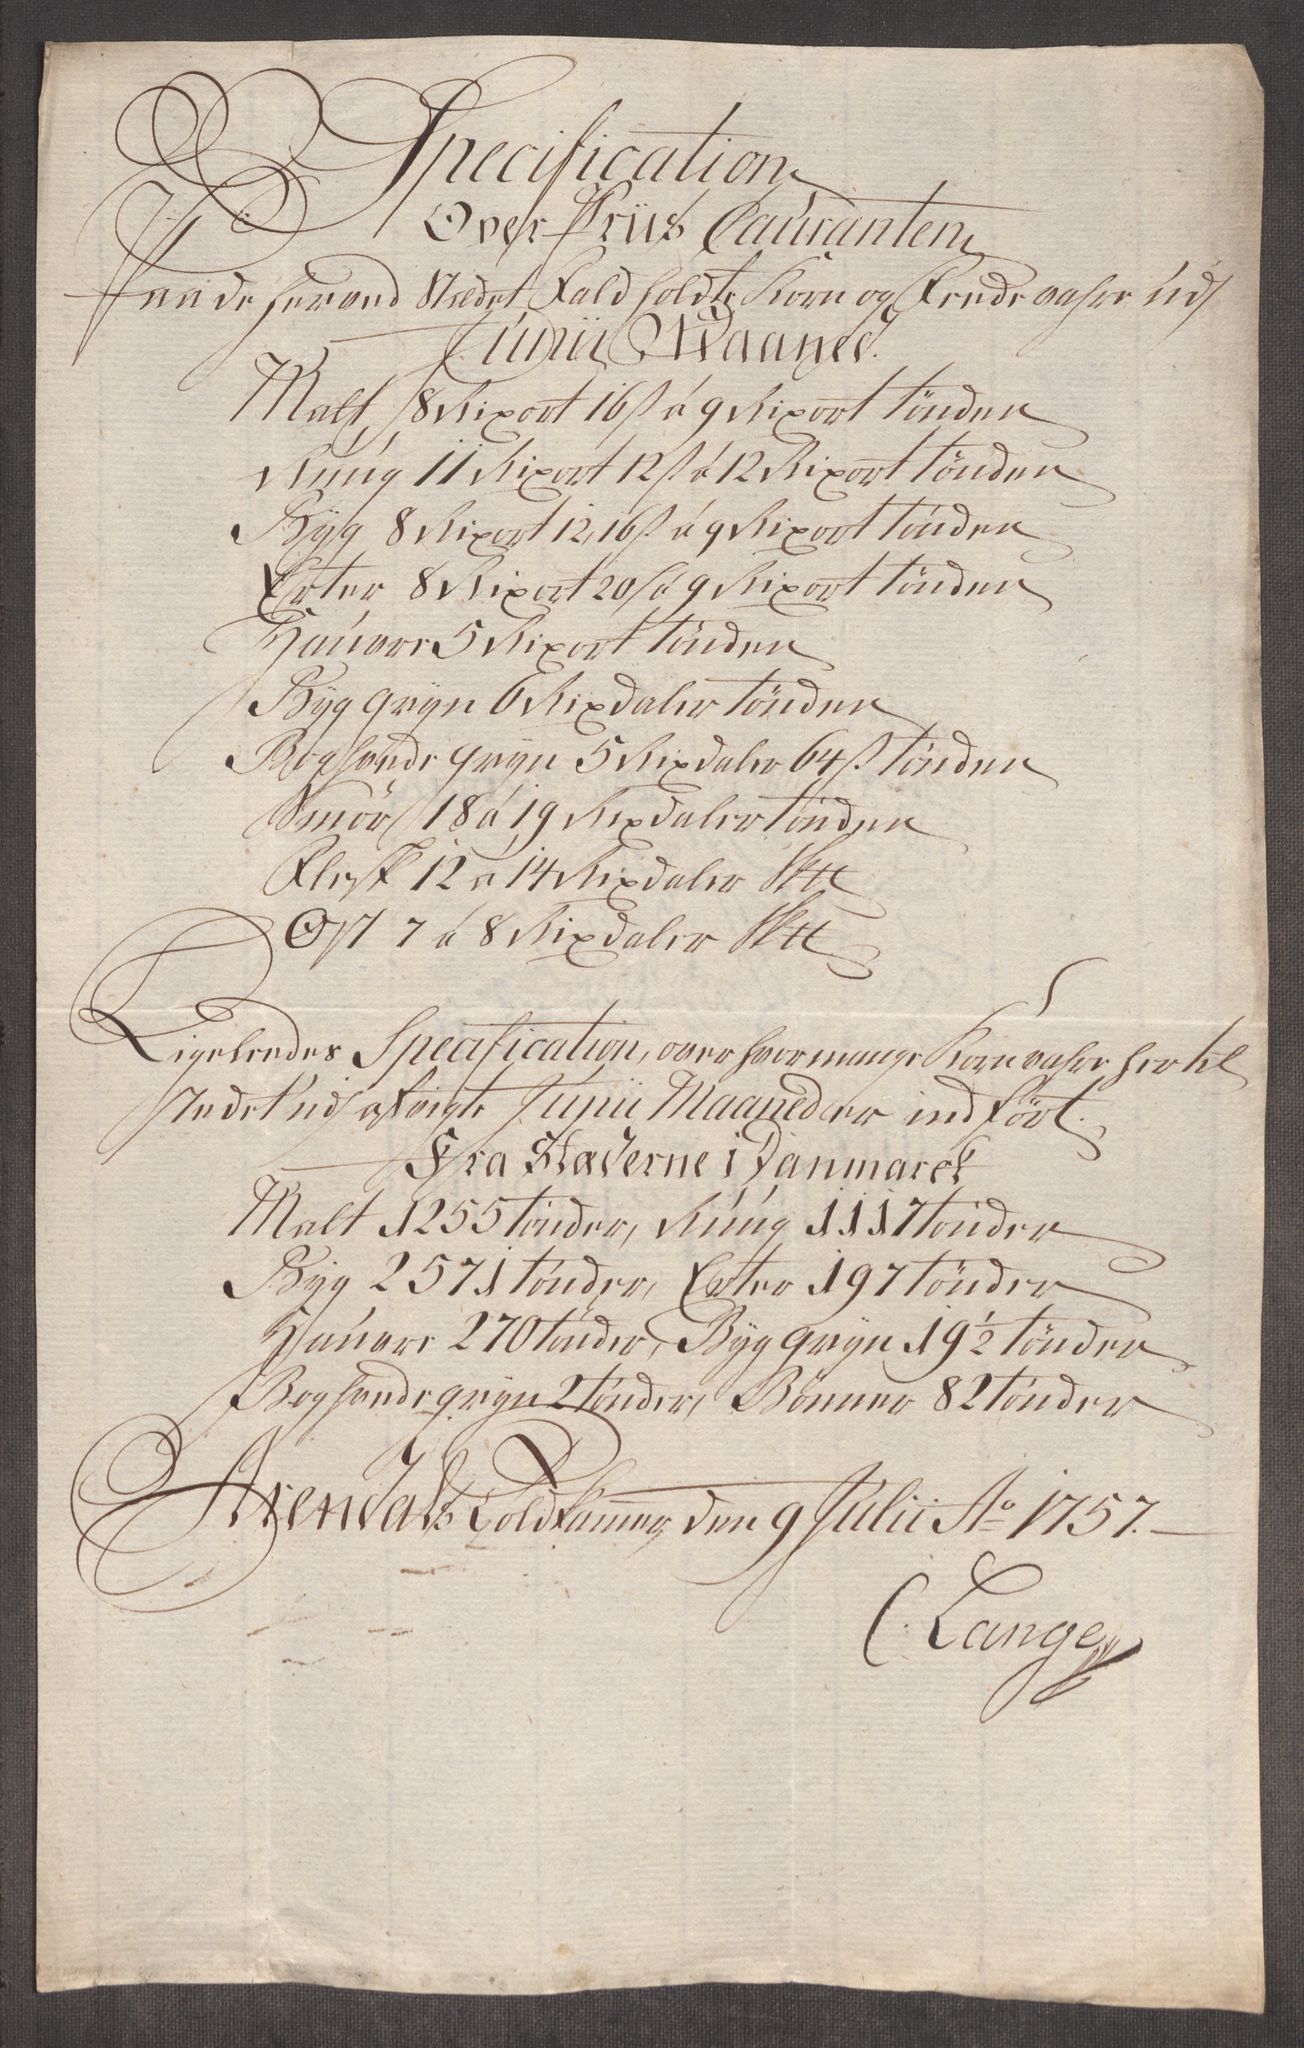 Specification
Over Priis Couranten
Paa de her ved Stædet Fald holdte Korn og Fædevahre udj
Junii Maaned.
Malt 8 Rixort 16 s á 9 Rixort tönden
Rúúg 11 Rixort 12 s á 12 Rixort tönden
Byg 8 Rixort 12, 16 s á 9 Rixort tönden
Erter 8 Rixort 20 s á 9 Rixort tönden
Haúvre 5 Rixort tönden
Byg gryn 6 Rixdaler tönden
Boghvede gryn 5 Rixdaler 64 s tönden
Smör 18 á 19 Rixdaler tönden
Flesk 12 á 14 Rixdaler Sk℔
Ost 7 á 8 Rixdaler Sk℔
Ligeleedes Specification, over hvor mange Korn vahre her til
stedet udj afvigte Junii Maaned er indfört.
Fra Stæderne i Danmarck
Malt 1255 tönder, Rúúg 1117 tönder
Byg 2571 tönder, Erter 197 tönder
Haúvre 270 tönder, Byg gryn 19 1/2 tönder
Boghvede gryn 2 tönder, Bönner 82 tönder
Arendals Toldkamer den 9 Julii Ao 1757.
C. Lange